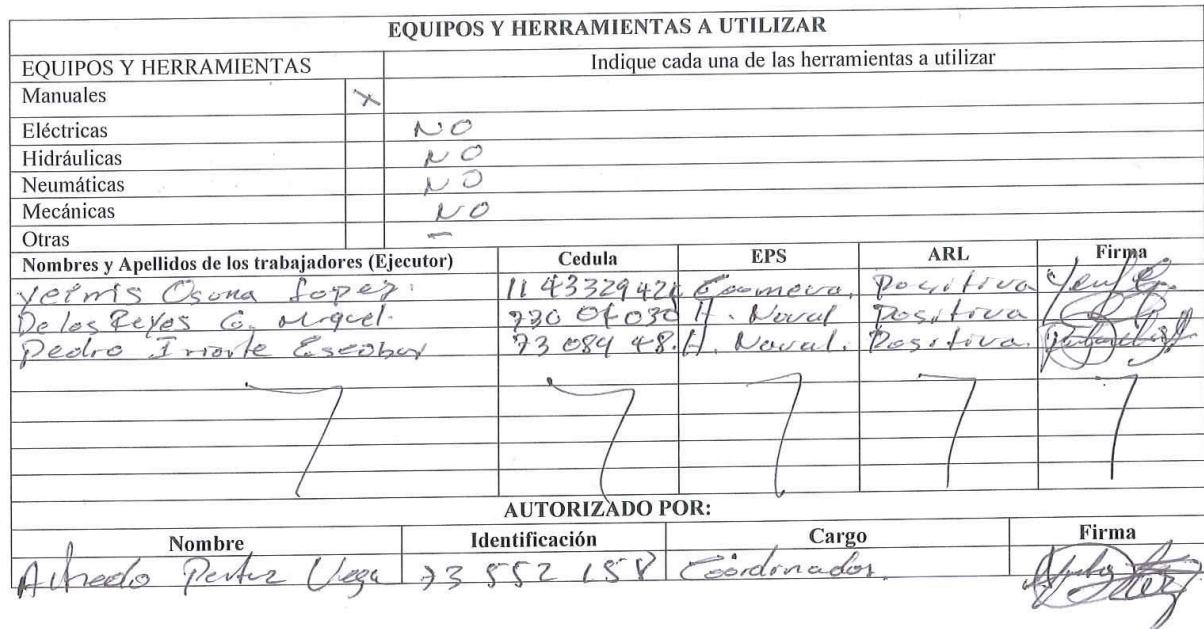 EQUIPOS Y HERRAMIENTAS A UTILIZAR
EQUIPOS Y HERRAMIENTAS Indique cada una de las herramientas a utilizar
Manuales X
Eléctricas NO
Hidráulicas NO
Neumáticas NO
Mecánicas NO
Otras —
Nombres y Apellidos de los trabajadores (Ejecutor) Cedula EPS ARL Firma
Yeimis Osuna Lopez. Coomeva. Positiva
De los Reyes G. Miguel. H. Naval Positiva
Pedro Iriarte Escobar 73 084 48. H. Naval. Positiva.
AUTORIZADO POR:
Nombre Identificación Cargo Firma
Alfredo Pertuz Vega 73 552 158 Coordinador.